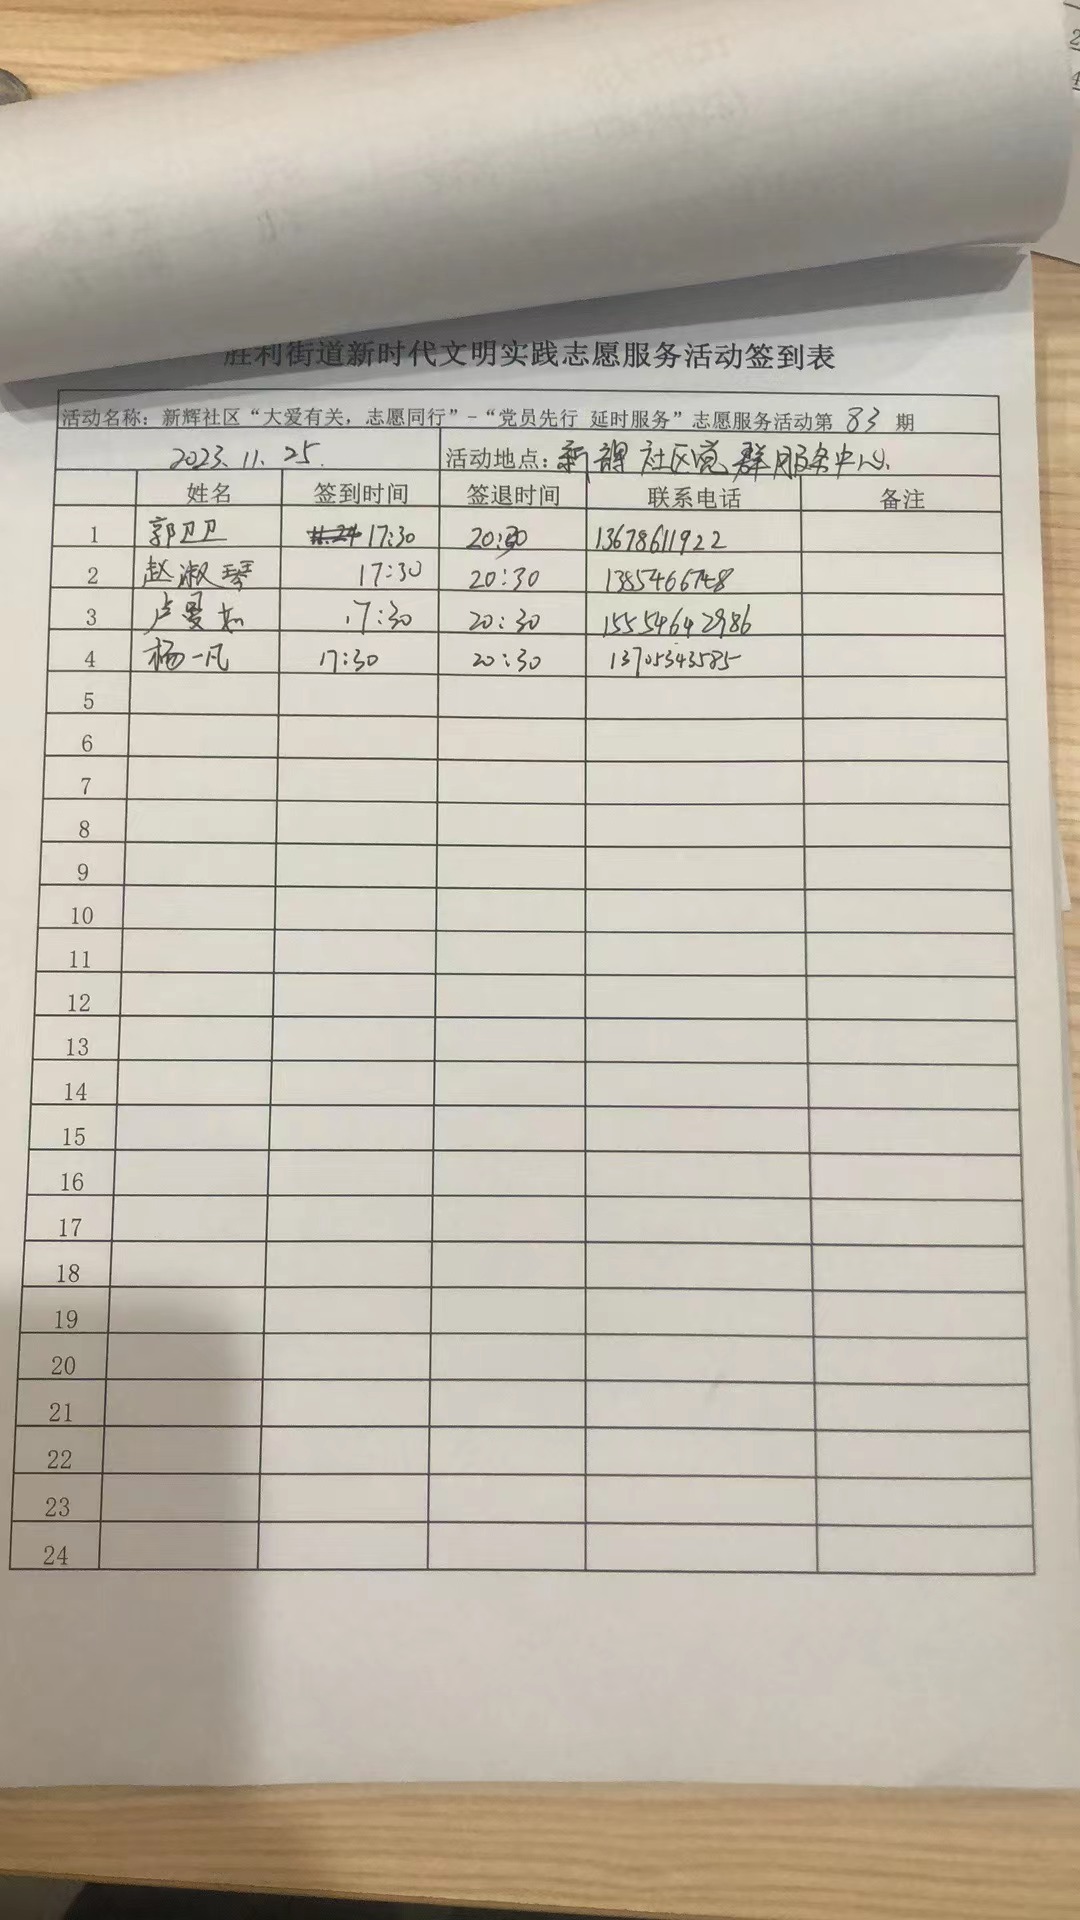 胜利街道新时代文明实践志愿服务活动签到表
活动名称：新辉社区“大爱有关，志愿同行”-“党员先行 延时服务”志愿服务活动第 83 期
2023.11.25. 活动地点：新辉社区党群服务中心.
姓名 签到时间 签退时间 联系电话 备注
1 郭卫卫 17:30 20:30 13678611922
2 赵淑琴 17:30 20:30 1385466748
3 卢曼 17:30 20:30 15554642986
4 杨一凡 17:30 20:30 13705343585
5
6
7
8
9
10
11
12
13
14
15
16
17
18
19
20
21
22
23
24